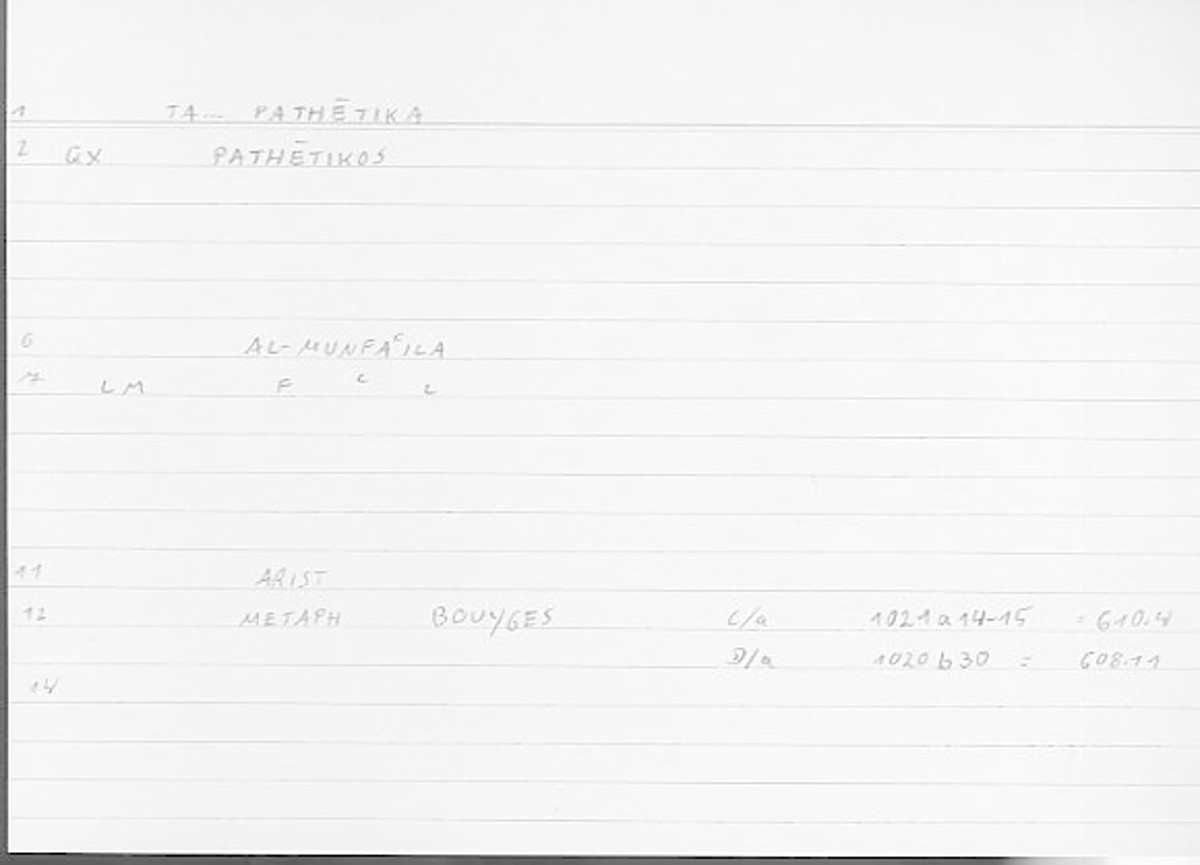 1 TA... PATHĒTIKA
2 GX PATHĒTIKOS
6 AL-MUNFAʿILA
7 LM F ʿ L
11 ARIST
12 METAPH BOUYGES C/a 1021a14-15 = 610.4
D/a 1020b30 = 608.11
14